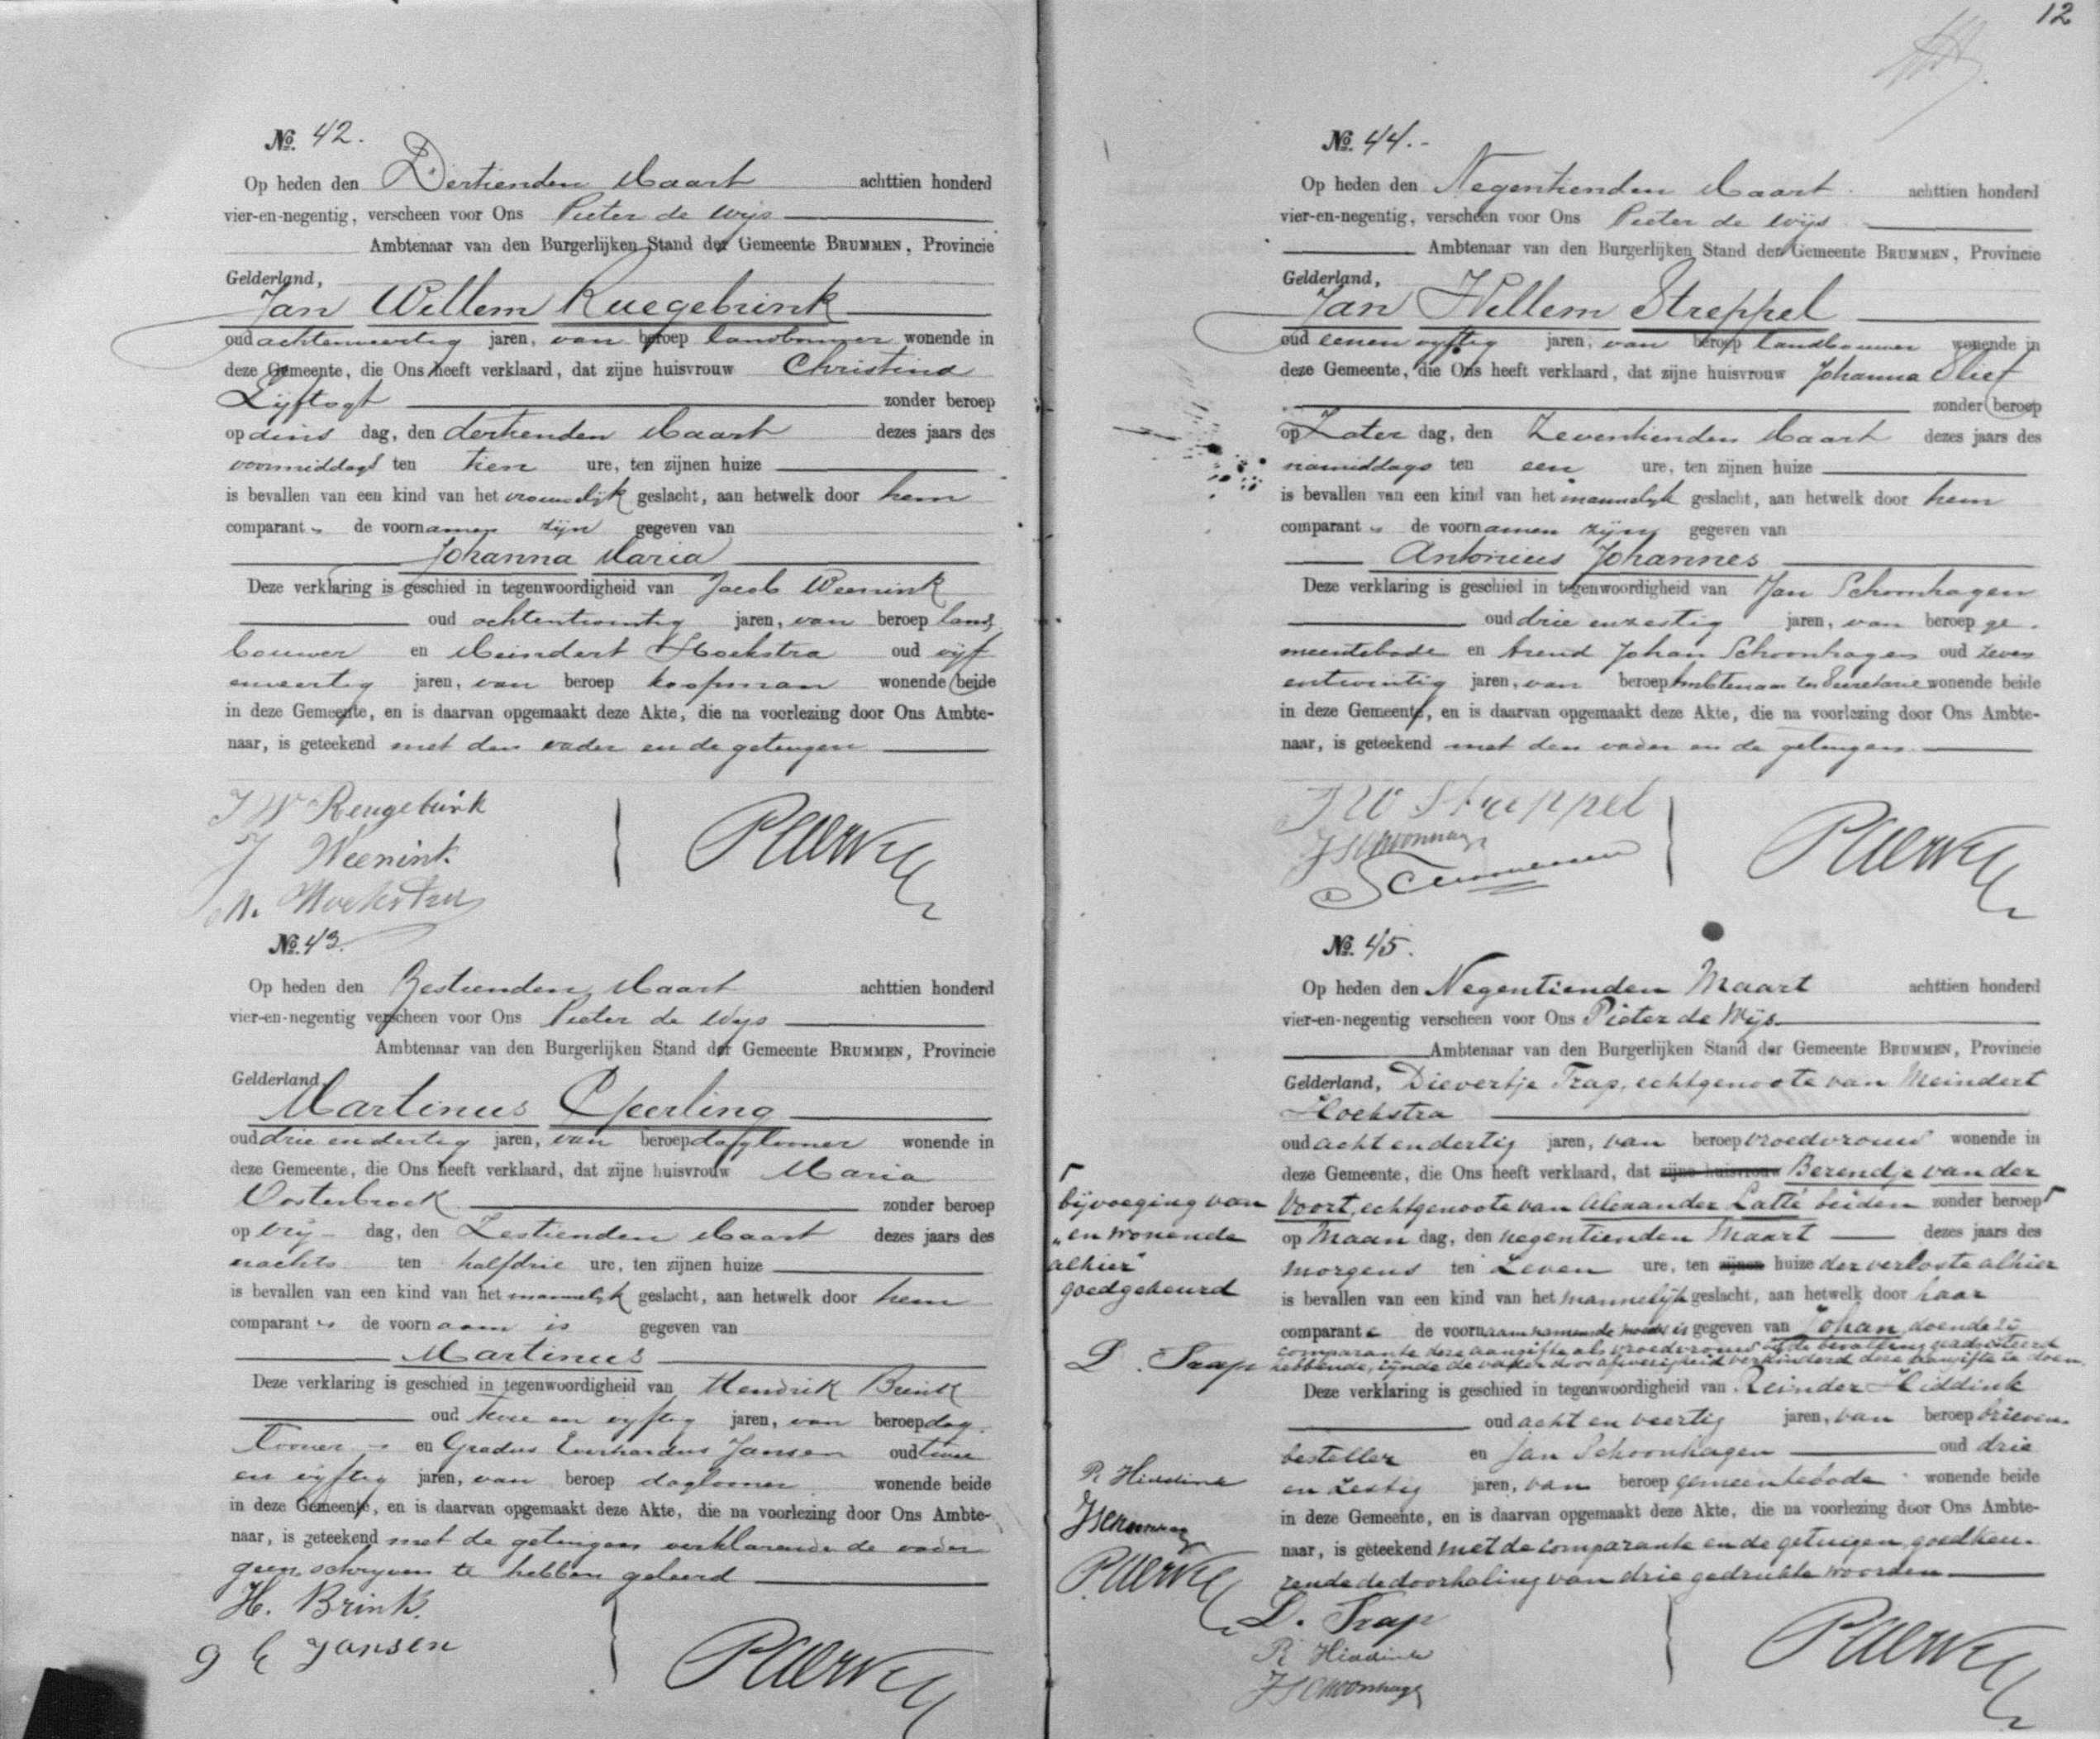 No. 42.
Op heden den Dertienden Maart achttien honderd
vier-en-negentig, verscheen voor Ons Pieter de Wijs
Ambtenaar van den Burgerlijken Stand der Gemeente BRUMMEN, Provincie
Gelderland,
Jan Willem Ruegebrink
oud achtenveertig jaren, van beroep landbouwer wonende in
deze Gemeente, die Ons heeft verklaard, dat zijne huisvrouw Christina
Lijftogt zonder beroep
op dins dag, den dertienden Maart dezes jaars des
voormiddags ten tien ure, ten zijnen huize
is bevallen van een kind van het vrouwelijk geslacht, aan hetwelk door hem
comparant de voornamen zijn gegeven van
Johanna Maria
Deze verklaring is geschied in tegenwoordigheid van Jacob Weenink
oud achtentwintig jaren, van beroep land
bouwer en Meindert Hoekstra oud vijf
enveertig jaren, van beroep koopman wonende beide
in deze Gemeente, en is daarvan opgemaakt deze Akte, die na voorlezing door Ons Ambte-
naar, is geteekend met den vader en de getuigen
J W Reugebrink
J Weenink.
M. Hoekstra
No. 43.
Op heden den Zestienden Maart achttien honderd
vier-en-negentig verscheen voor Ons Pieter de Wijs
Ambtenaar van den Burgerlijken Stand der Gemeente BRUMMEN, Provincie
Gelderland,
Martinus Geerling
oud drie en dertig jaren, van beroep daglooner wonende in
deze Gemeente, die Ons heeft verklaard, dat zijne huisvrouw Maria
Oosterbroek zonder beroep
op vrij dag, den Zestienden Maart dezes jaars des
nachts ten halfdrie ure, ten zijnen huize
is bevallen van een kind van het mannelijk geslacht, aan hetwelk door hem
comparant de voornaam is gegeven van
Martinus
Deze verklaring is geschied in tegenwoordigheid van Hendrik Brink
oud twee en vijftig jaren, van beroep dag
looner en Gradus Everhardus Jansen oud twee
en vijftig jaren, van beroep daglooner wonende beide
in deze Gemeente, en is daarvan opgemaakt deze Akte, die na voorlezing door Ons Ambte-
naar, is geteekend met de getuigen verklarende de vader
geen schrijven te hebben geleerd
H. Brink.
G E Jansen
12
No. 44.
Op heden den Negentienden Maart achttien honderd
vier-en-negentig, verscheen voor Ons Pieter de Wijs
Ambtenaar van den Burgerlijken Stand der Gemeente BRUMMEN, Provincie
Gelderland,
Jan Willem Streppel
oud eenen vijftig jaren, van beroep landbouwer wonende in
deze Gemeente, die Ons heeft verklaard, dat zijne huisvrouw Johanna Slief
zonder beroep
op Zater dag, den Zeventienden Maart dezes jaars des
namiddags ten een ure, ten zijnen huize
is bevallen van een kind van het mannelijk geslacht, aan hetwelk door hem
comparant de voornamen zijn gegeven van
Antonius Johannes
Deze verklaring is geschied in tegenwoordigheid van Jan Schoonhagen
oud drie enzestig jaren, van beroep ge-
meentebode en Arend Johan Schoonhagen oud zeven
entwintig jaren, van beroep Ambtenaar ter Secretarie wonende beide
in deze Gemeente, en is daarvan opgemaakt deze Akte, die na voorlezing door Ons Ambte-
naar, is geteekend met den vader en de getuigen
J W Streppel
J Schoonhagen
No. 45.
Op heden den Negentienden Maart achttien honderd
vier-en-negentig verscheen voor Ons Pieter de Wijs
Ambtenaar van den Burgerlijken Stand der Gemeente BRUMMEN, Provincie
Gelderland, Dievertje Trap, echtgenoote van Meindert
Hoekstra
oud acht endertig jaren, van beroep vroedvrouw wonende in
deze Gemeente, die Ons heeft verklaard, dat zijne huisvrouw Berendje van der
Voort, echtgenoote van Alexander Latté beiden zonder beroep
op Maan dag, den negentienden Maart dezes jaars des
morgens ten Zeven ure, ten zijnen huize der verloste alhier
is bevallen van een kind van het mannelijk geslacht, aan hetwelk door haar
comparante de voornaam namens de moeder is gegeven van Johan, doende zij
comparante deze aangifte als vroedvrouw bij de bevalling geadsisteerd
hebbende, zijnde de vader door afwezigheid verhinderd deze aangifte te doen.
Deze verklaring is geschied in tegenwoordigheid van Reinder Hiddink
oud acht en veertig jaren, van beroep brieven-
besteller en Jan Schoonhagen oud drie
en zestig jaren, van beroep gemeentebode wonende beide
in deze Gemeente, en is daarvan opgemaakt deze Akte, die na voorlezing door Ons Ambte-
naar, is geteekend met de comparante en de getuigen, goedkeu-
rende de doorhaling van drie gedrukte woorden
D. Trap
R Hiddink
J Schoonhagen
bijvoeging van
"en wonende
alhier"
goedgekeurd
D. Traap
R Hiddink
J Schoonhagen